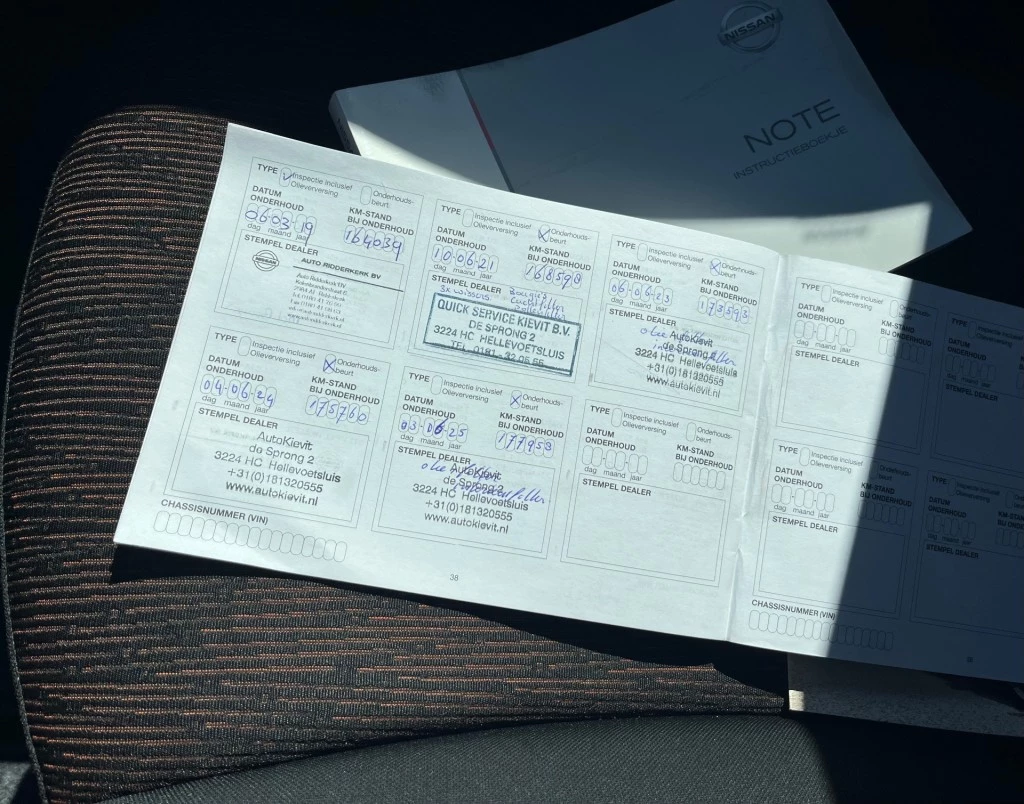 NISSAN
NOTE
INSTRUCTIEBOEKJE
TYPE Inspectie inclusief Olieverversing Onderhouds-beurt
DATUM ONDERHOUD
06-03-19
dag maand jaar
KM-STAND BIJ ONDERHOUD
164039
STEMPEL DEALER
NISSAN
AUTO RIDDERKERK BV
TYPE Inspectie inclusief Olieverversing Onderhouds-beurt
DATUM ONDERHOUD
10-06-21
dag maand jaar
KM-STAND BIJ ONDERHOUD
168598
STEMPEL DEALER
QUICK SERVICE KIEVIT B.V.
DE SPRONG 2
3224 HC HELLEVOETSLUIS
TYPE Inspectie inclusief Olieverversing Onderhouds-beurt
DATUM ONDERHOUD
06-06-23
dag maand jaar
KM-STAND BIJ ONDERHOUD
173593
STEMPEL DEALER
AutoKievit
de Sprong 2
3224 HC Hellevoetsluis
+31(0)181320555
www.autokievit.nl
TYPE Inspectie inclusief Olieverversing Onderhouds-beurt
DATUM ONDERHOUD
04-06-24
dag maand jaar
KM-STAND BIJ ONDERHOUD
175760
STEMPEL DEALER
AutoKievit
de Sprong 2
3224 HC Hellevoetsluis
+31(0)181320555
www.autokievit.nl
TYPE Inspectie inclusief Olieverversing Onderhouds-beurt
DATUM ONDERHOUD
03-06-25
dag maand jaar
KM-STAND BIJ ONDERHOUD
177953
STEMPEL DEALER
AutoKievit
de Sprong 2
3224 HC Hellevoetsluis
+31(0)181320555
www.autokievit.nl
TYPE Inspectie inclusief Olieverversing Onderhouds-beurt
DATUM ONDERHOUD
dag maand jaar
KM-STAND BIJ ONDERHOUD
STEMPEL DEALER
CHASSISNUMMER (VIN)
38
TYPE Inspectie inclusief Olieverversing Onderhouds-beurt
DATUM ONDERHOUD
dag maand jaar
KM-STAND BIJ ONDERHOUD
STEMPEL DEALER
TYPE Inspectie inclusief Olieverversing
DATUM ONDERHOUD
dag maand jaar
STEMPEL DEALER
TYPE Inspectie inclusief Olieverversing Onderhouds-beurt
DATUM ONDERHOUD
dag maand jaar
KM-STAND BIJ ONDERHOUD
STEMPEL DEALER
TYPE Inspectie inclusief Olieverversing
DATUM ONDERHOUD
dag maand jaar
STEMPEL DEALER
CHASSISNUMMER (VIN)